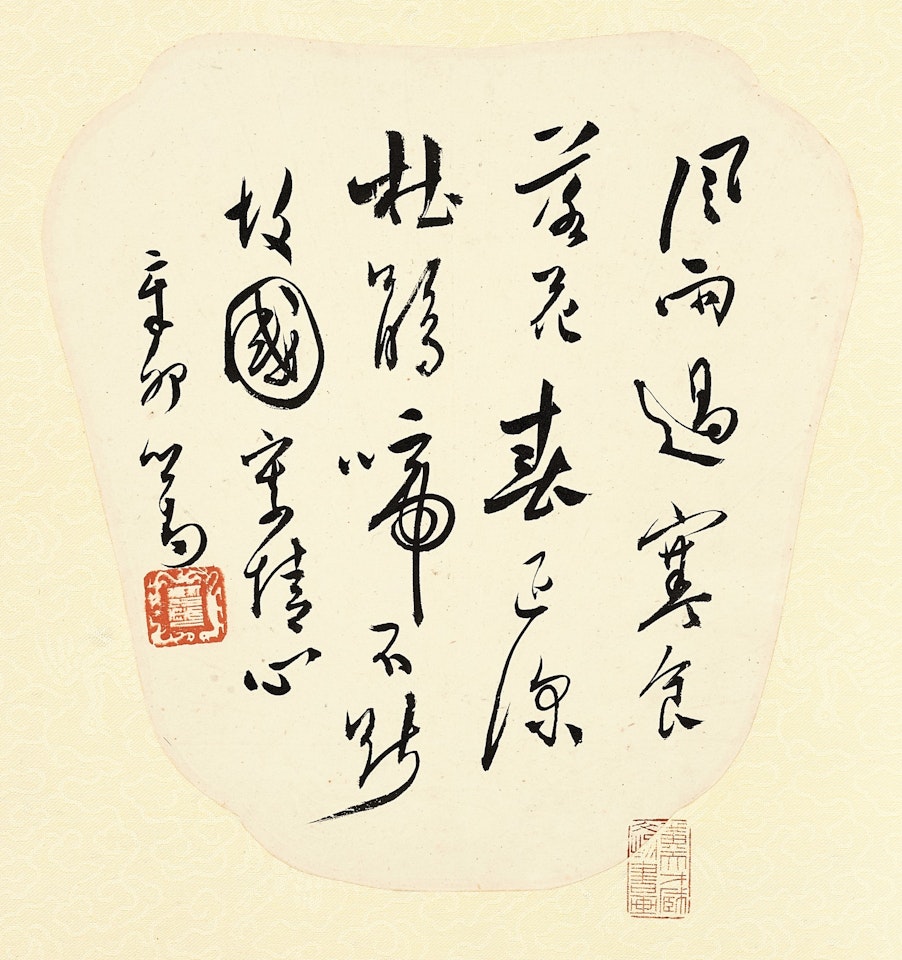 風雨過寒食
落花春已深
杜鵑啼不斷
故國情心
辛卯心畬